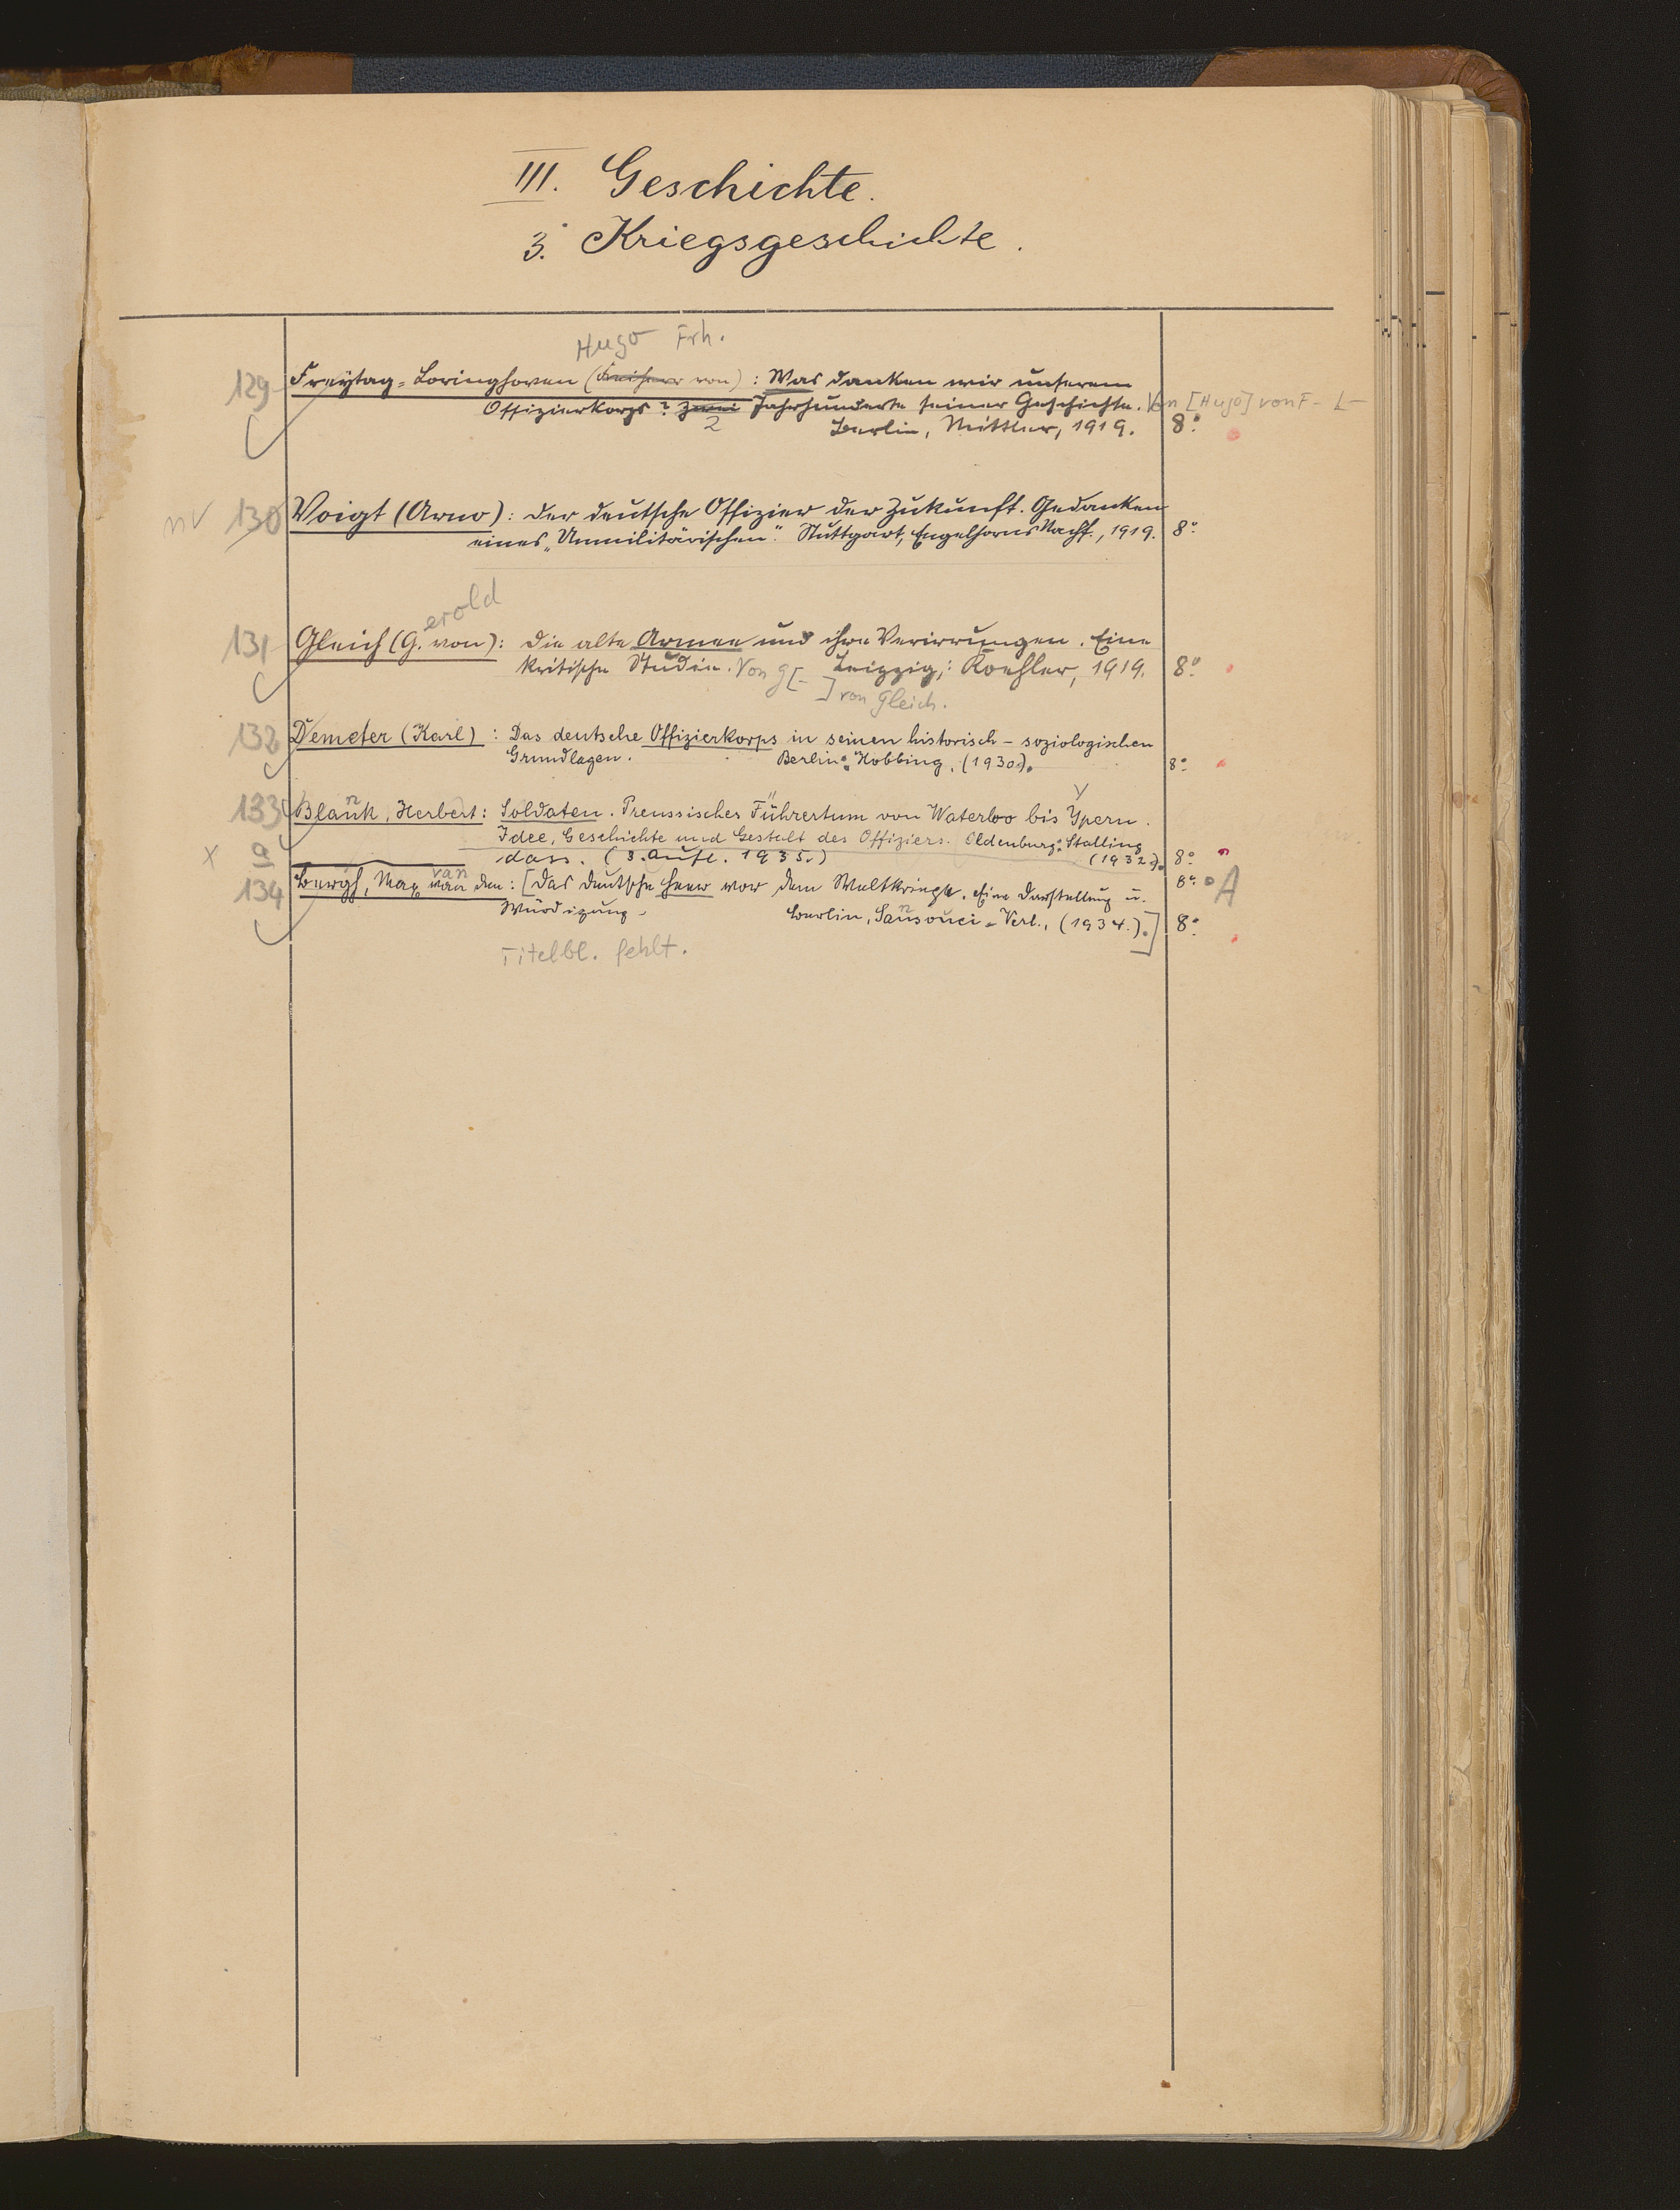 III. Geschichte.
3. Kriegsgeschichte.
Hugo Frh.
129 Freytag=Loringhoven (Freiherr von): Was danken wir unserem
Offizierkorps? Zwei Jahrhunderte seiner Geschichte. Von [Hugo] von F- L-
2 Berlin, Mittler, 1919. 8°
nv 130 Voigt (Arno): Der deutsche Offizier der Zukunft. Gedanken
eines „Unmilitärischen". Stuttgart, Engelhorns Nachf., 1919. 8°
erold
131 Gleich (G. von): Die alte Armee und ihre Verirrungen. Eine
kritische Studie. Von G[- Leipzig: Koehler, 1919. 8°
] von Gleich.
132 Demeter (Karl): Das deutsche Offizierkorps in seinen historisch-soziologischen
Grundlagen. Berlin: Hobbing, (1930). 8°
n Y
133 Blank, Herbert: Soldaten. Preussisches Führertum von Waterloo bis Ypern.
Idee, Geschichte und Gestalt des Offiziers. Oldenburg: Stalling
x a dass. (3. Aufl. 1935.) (1932). 8°
van
134 Bergh, Max van den: [Das deutsche Heer vor dem Weltkriege. Eine Darstellung u. 8° A
Würdigung. Berlin, Sansouci=Verl., (1934.).] 8°
Titelbl. fehlt.